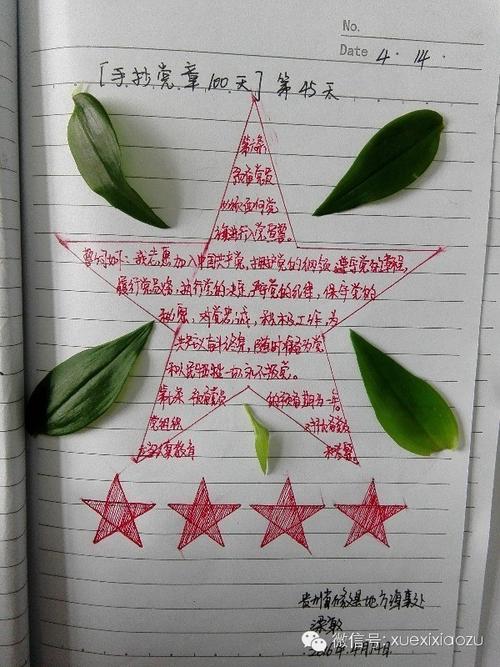 No.
Date 4·14·
[手抄党章100天] 第45天
第六条
预备党员
必须面向党
旗进行入党宣誓。
誓词如下：我志愿加入中国共产党，拥护党的纲领，遵守党的章程，
履行党员义务，执行党的决定，严守党的纪律，保守党的
秘密，对党忠诚，积极工作，为
共产主义奋斗终身，随时准备为党
和人民牺牲一切，永不叛党。
第七条 预备党员 的预备期为一年。
党组织 对预备党员
应当认真教育
地方海事处
2016年4月14日
微信号: xuexixiaozu